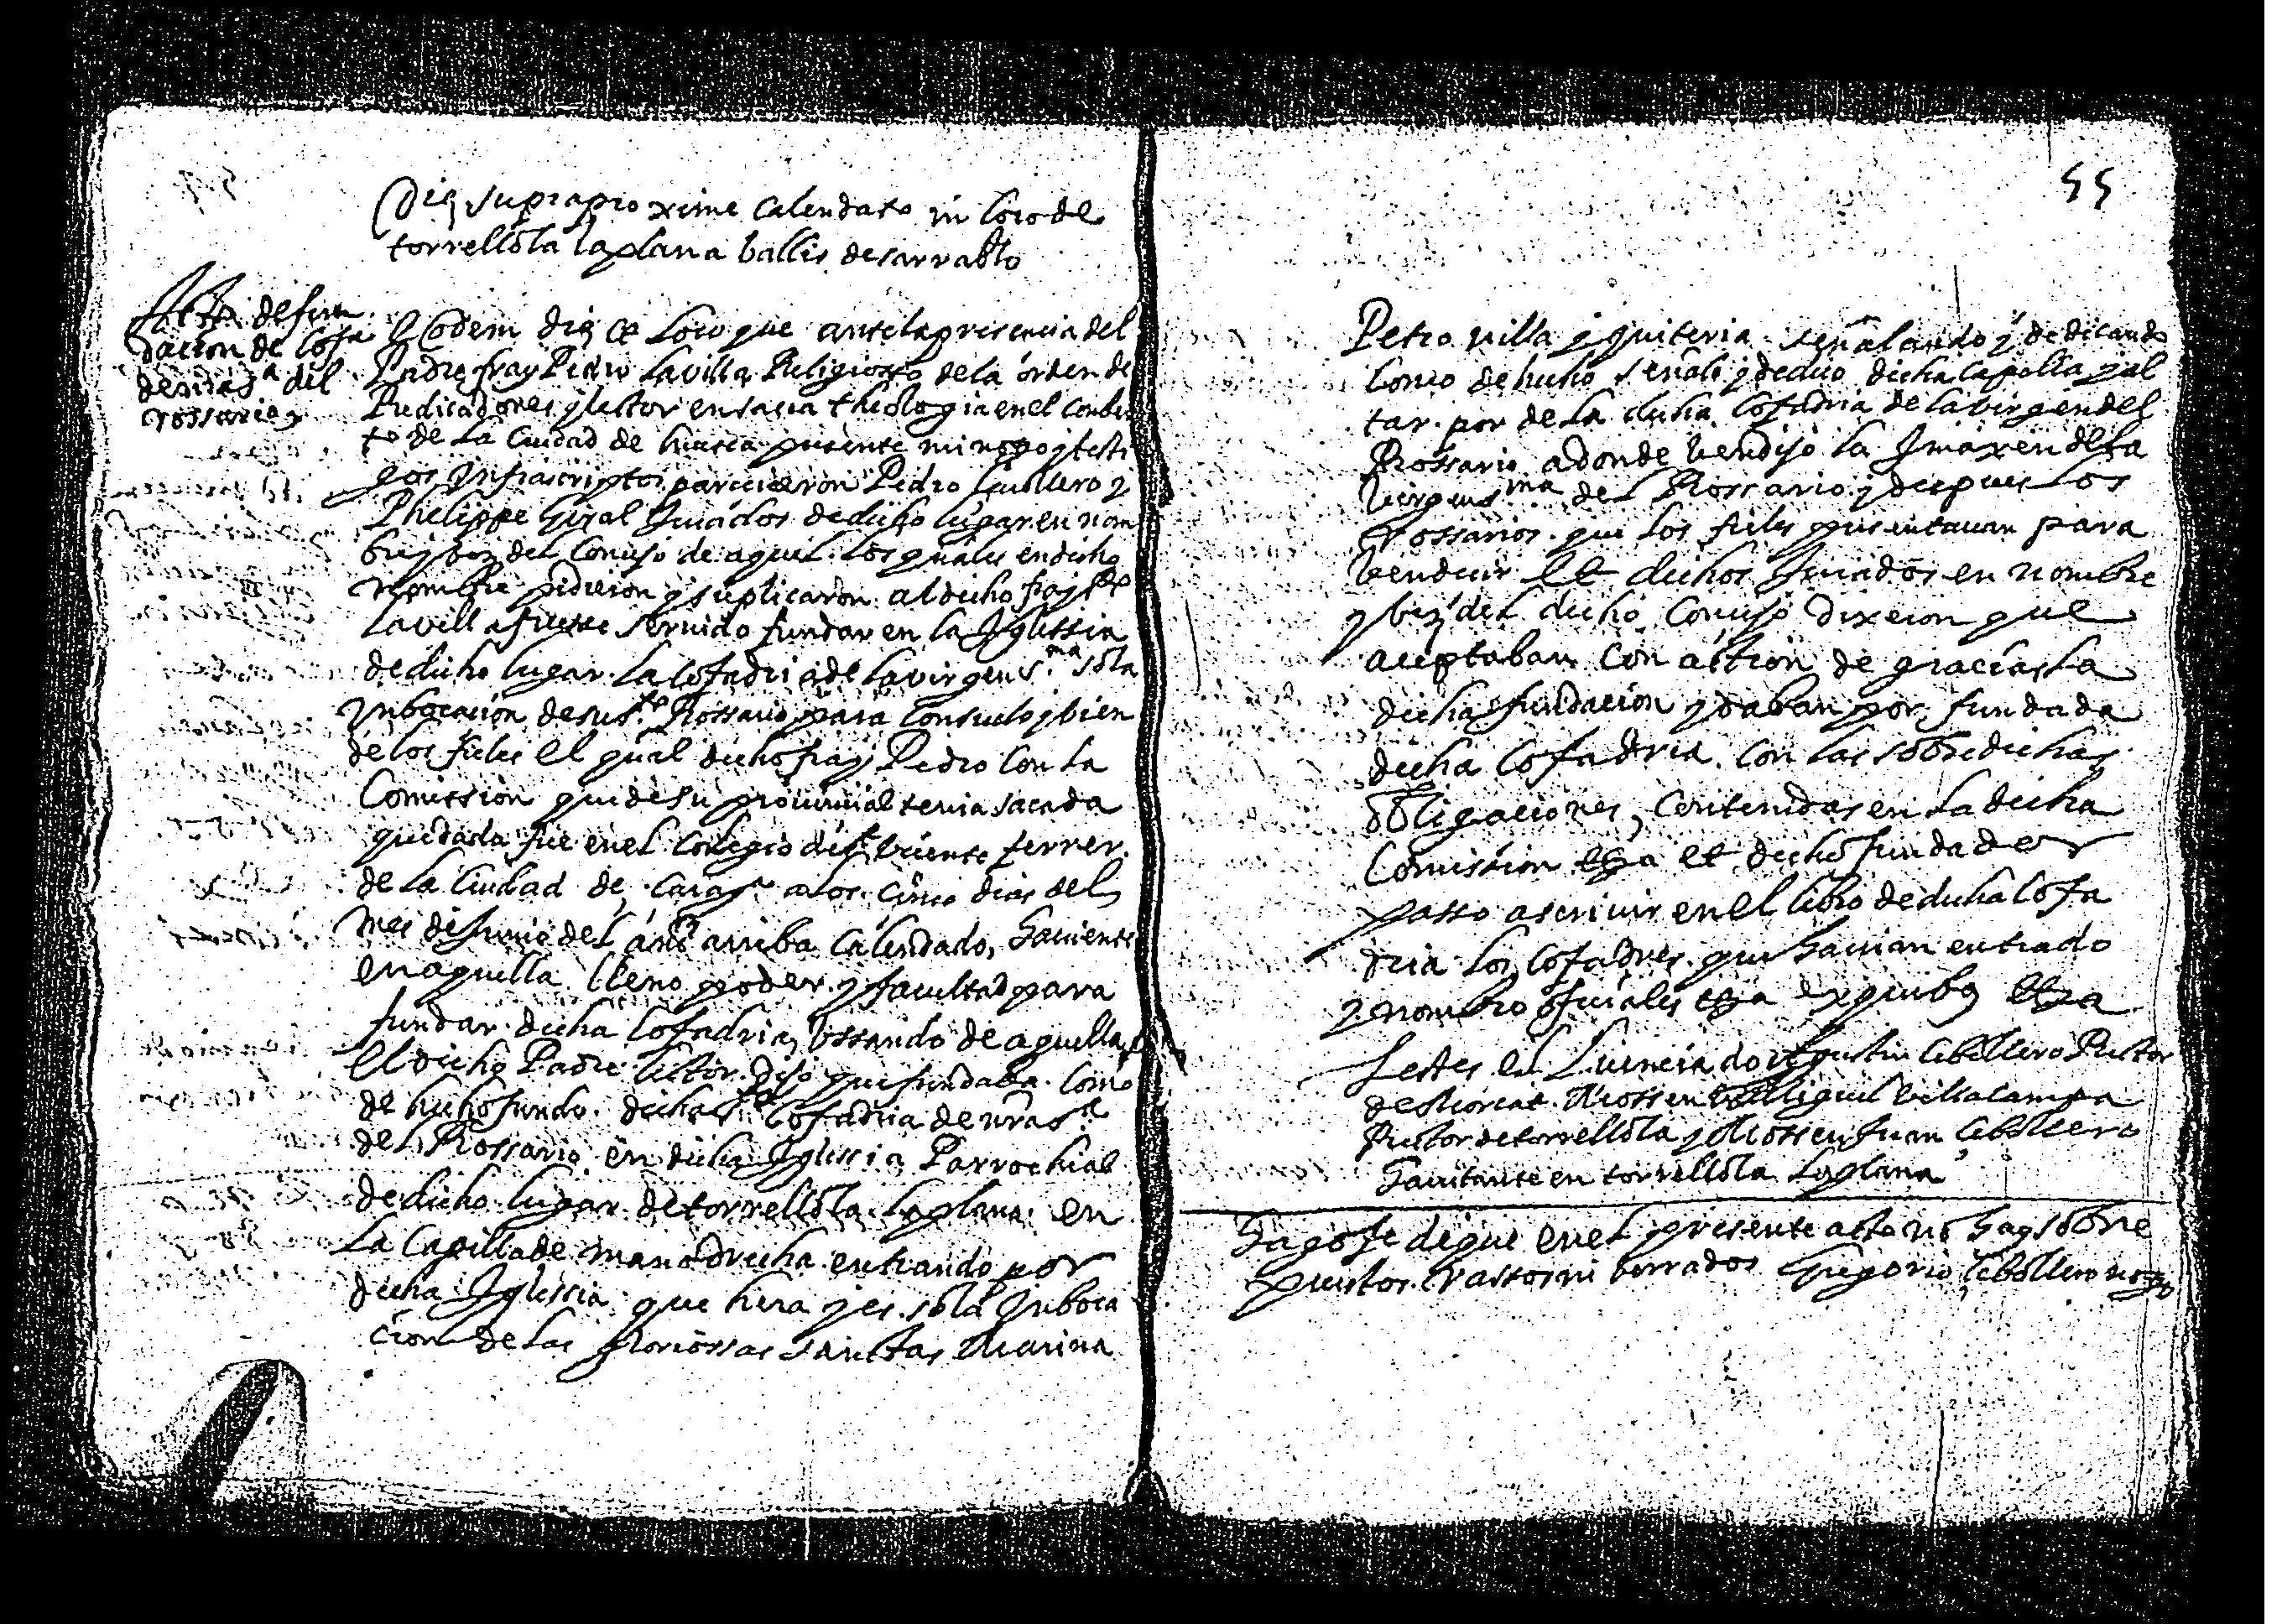 Die supraproxime calendato in loco de
torrellola la plana ballis de sarrablo
Acto de fun
dacion de cofa
de nra s.ª del
rossario
Eodem die et loco que ante la presencia del
Padre fray Pedro Lavilla Religiosso de la órden de
Predicadores y letor en sacra theologia en el conben
to de la Ciudad de huesca presente mi noto y testi
gos Infrascriptos parecieron Pedro Cebollero y
Phelippe Gizal Jurados de dicho lugar en nom
bre y boz del Concejo de aquel. los quales en dicho
nombre pidieron y suplicaron al dicho fray Po
Lavilla fuesse servido fundar en la Iglessia
de dicho lugar la cofadria de la virgen s.ma so la
Inbocacion de su s.to Rossario para consuelo y bien
de los fieles el qual dicho fray Pedro con la
Comission que de su provincial tenia sacada
que dada fue en el Colegio de S.t Vicente ferrer
de la Ciudad de Carag.ª a los cinco dias del
mes de Junio del año arriba calendado, haviente
en aquella lleno poder y facultad para
fundar dicha cofadria, ussando de aquella
el dicho Padre letor. dijo que fundaba. como
de hecho fundo. dicha s.ta Cofadria de nra s.ª
del Rossario en dicha Iglessia Parrochial
de dicho lugar de torrellola la plana en
la Capilla de mano drecha entrando por
dicha Iglessia que hera y es so la Inboca
cion de las gloriossas sanctas Marina
55
Petronilla y quiteria señalando y dedicando
como de hecho señalo y dedico dicha capilla y al
tar por de la dicha Cofadria de la virgen del
Rossario a donde bendijo la Imaxen de la
Virgen s.ma del Rossario y despues los
Rossarios que los fieles presentavan para
bendecir Et dichos Jurados en nombre
y bez del dicho Concejo dixeron que
aceptaban con action de gracias la
dicha fundacion y daban por fundada
dicha cofadria con las sobredichas
obligaciones, contenidas en la dicha
Comission et dicho fundador
passo a scrivir en el libro de dicha cofa
dria los cofadres que havian entrado
y nombro oficiales ex quibus
Testes el Licenciado Agustin Cebollero Rector
de Miguel Villacampa
Rector de torrellola y Mossen Juan Cebollero
havitante en torrellola la plana
Hago fe de que en el presente acto no hay sobre
puestos rassos ni borrados Gregorio Cebollero noto